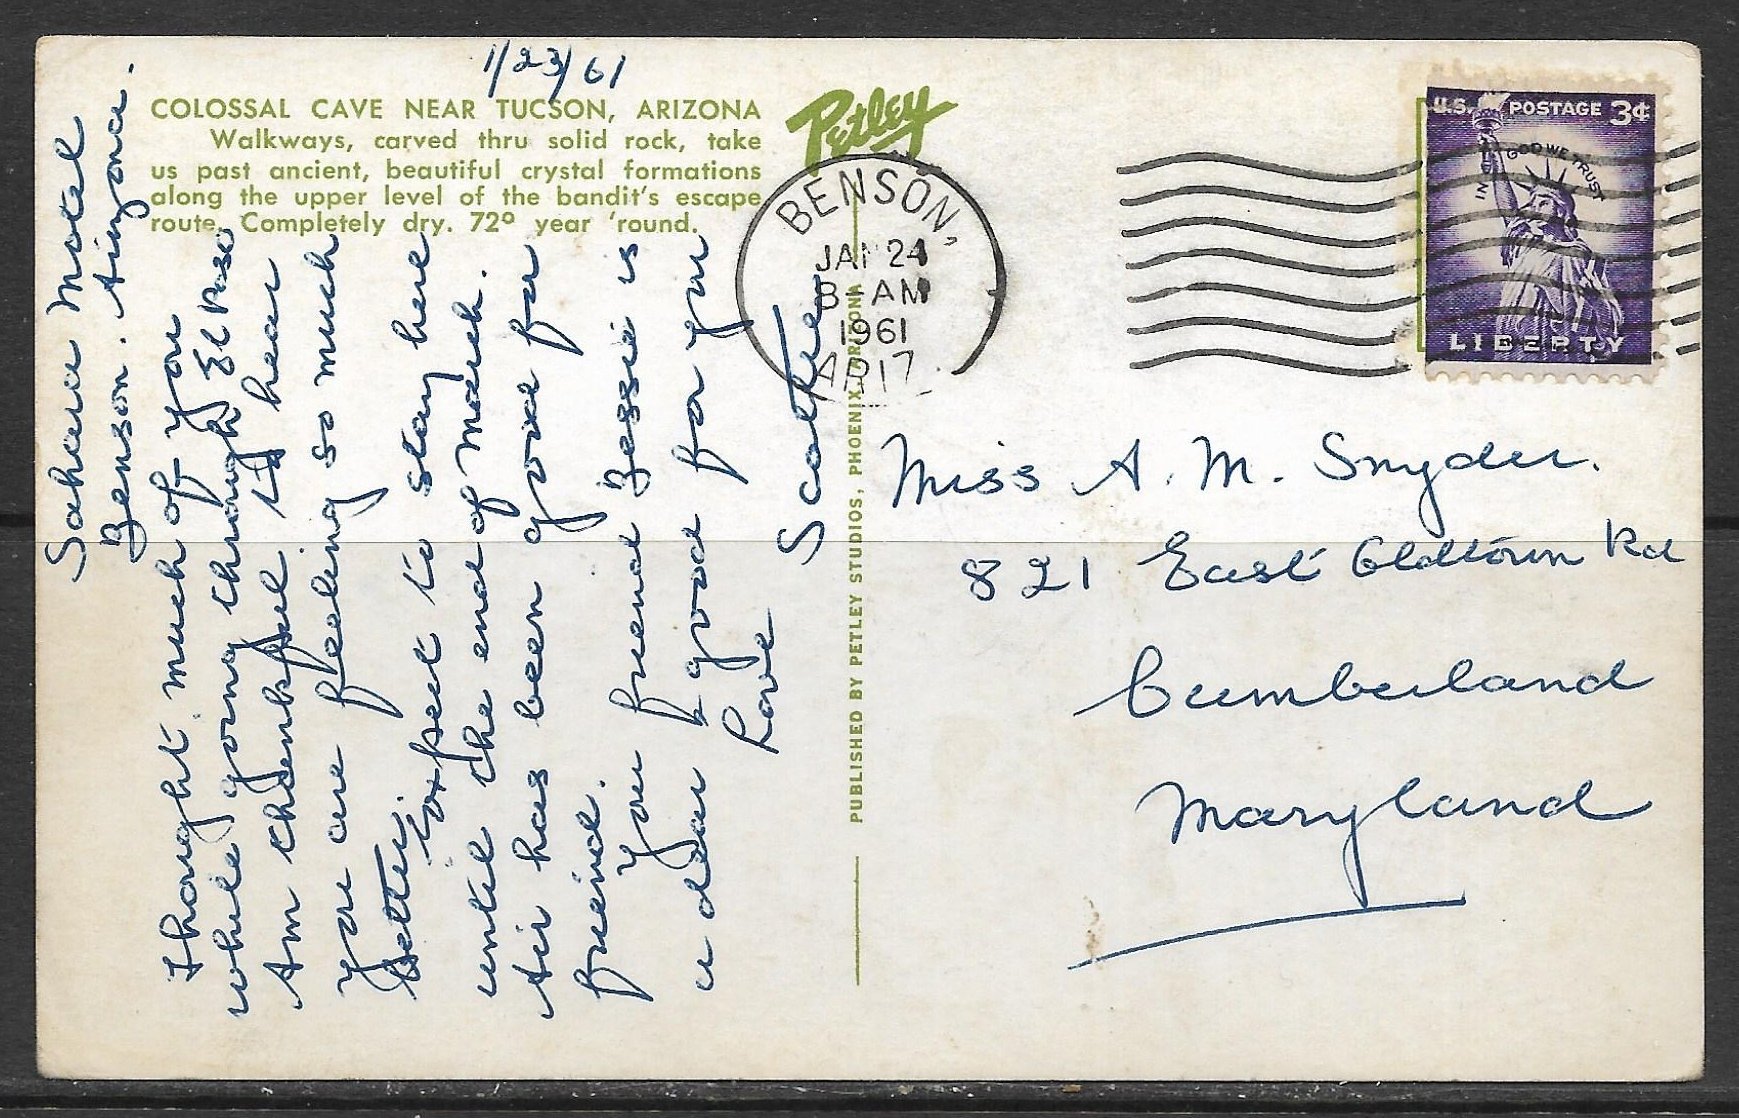 1/23/61
COLOSSAL CAVE NEAR TUCSON, ARIZONA
Walkways, carved thru solid rock, take
us past ancient, beautiful crystal formations
along the upper level of the bandit's escape
route. Completely dry. 72° year 'round.
Petley
BENSON,
JAN 24
8 AM
1961
ARIZ
U.S. POSTAGE 3¢
IN GOD WE TRUST
LIBERTY
Sahara Motel
Benson. Arizona.
Thought much of you
while going through El Paso
Am thankful to hear
you are feeling so much
better.
Expect to stay here
until the end of March.
Air has been good for
friend.
Your friend Bessie is
a dear & good for you
Love
Scottie
PUBLISHED BY PETLEY STUDIOS, PHOENIX, ARIZONA
Miss A. M. Snyder.
821 East Oldtown Rd
Cumberland
Maryland